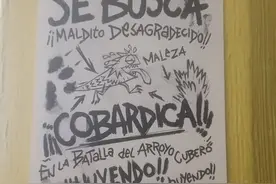 SE BUSCA
¡¡MALDITO DESAGRADECIDO!!
MALEZA
¡¡¡COBARDICA!!!
EN LA BATALLA DEL ARROYO CUBERÓ
¡¡HUYENDO!!
HUYENDO!!